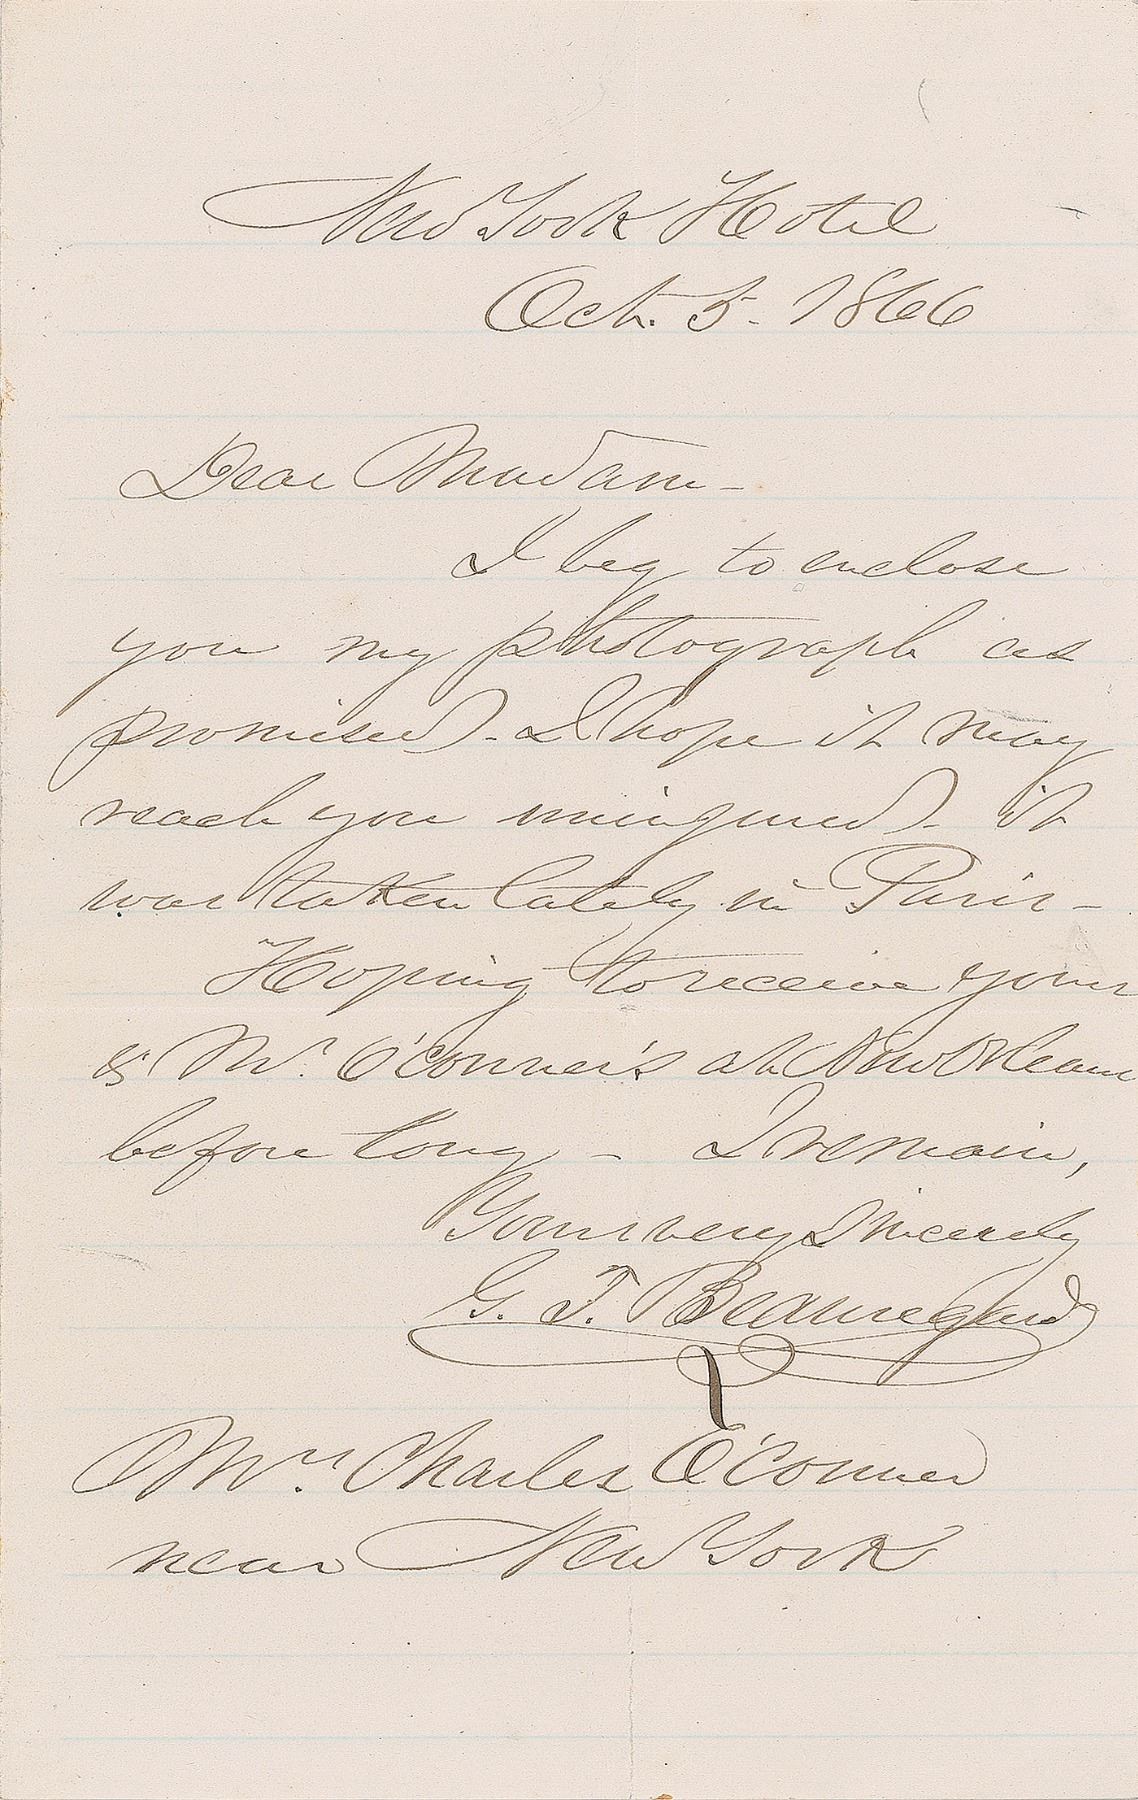 New York Hotel
Oct. 5 - 1866
Dear Madam -
I beg to enclose
you my photograph as
promised - I hope it may
reach you uninjured - it
was taken lately in Paris -
Hoping to receive yours
& Mr. O'Conner's at New Orleans
before long - I remain,
Yours very Sincerely
G. T. Beauregard
Mrs. Charles O'Conner
near New York